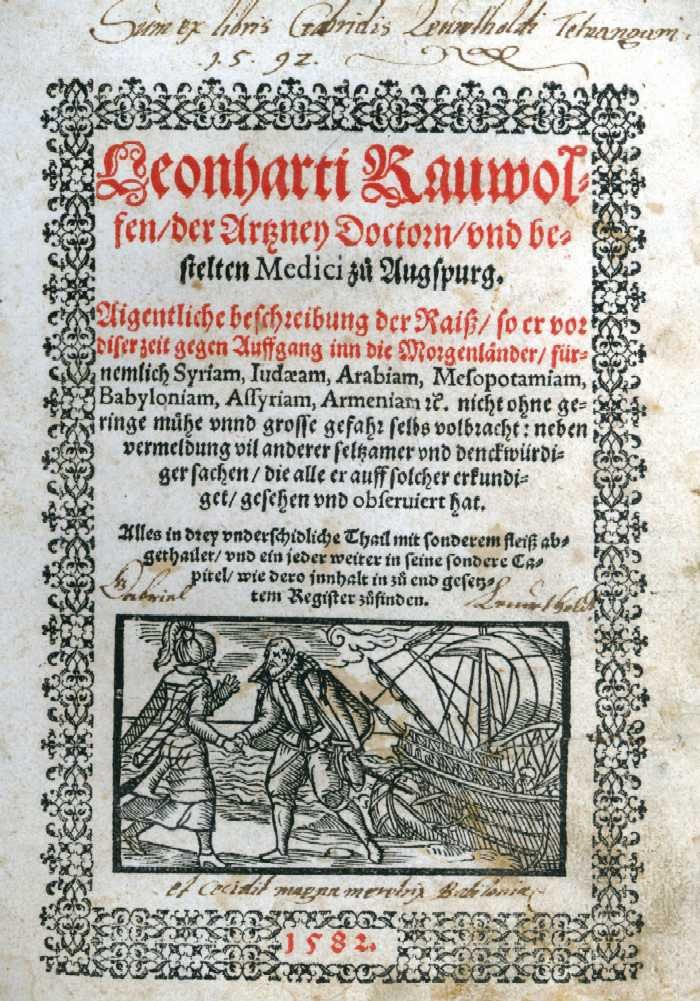 Sum ex libris Gabrielis Tetnangam.
1592.
Leonharti Rauwol-
fen/ der Artzney Doctorn/ vnd be-
stelten Medici zů Augspurg.
Aigentliche beschreibung der Raiß/ so er vor
diser zeit gegen Auffgang inn die Morgenländer/ für-
nemlich Syriam, Iudæam, Arabiam, Mesopotamiam,
Babyloniam, Assyriam, Armeniam ꝛc. nicht ohne ge-
ringe mühe vnnd grosse gefahr selbs volbracht: neben
vermeldung vil anderer seltzamer vnd denckwürdi-
ger sachen/ die alle er auff solcher erkundi-
get/ gesehen vnd obseruiert hat.
Alles in drey vnderschidliche Thail mit sonderem fleiß ab-
gethailet/ vnd ein jeder weiter in seine sondere Ca-
pitel/ wie dero innhalt in zů end gesetz-
tem Register zůfinden.
Gabriel
et Cecidit magna meretrix Babilonia
1582.